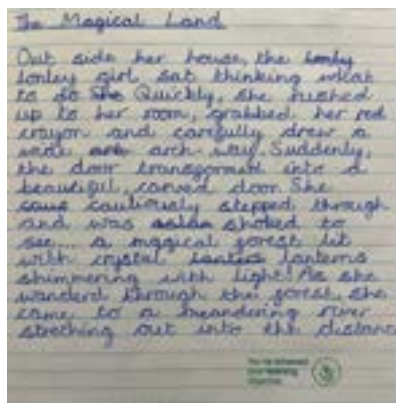 The Magical Land
Out side her house, the lonly
lonley girl sat thinking what
to do She Quickly, she rushed
up to her room, grabbed her red
crayon and carefully drew a
arch-way. Suddenly,
the door transformed into a
beautiful, carved door. She
caus cautiously stepped through
and was shoked to
see... a magical forest lit
with crystal lanters lanterns
shimmering with light! As she
wanderd through the forest, she
came to a meandering river
streching out into the distanc
You've achieved
your learning
objective